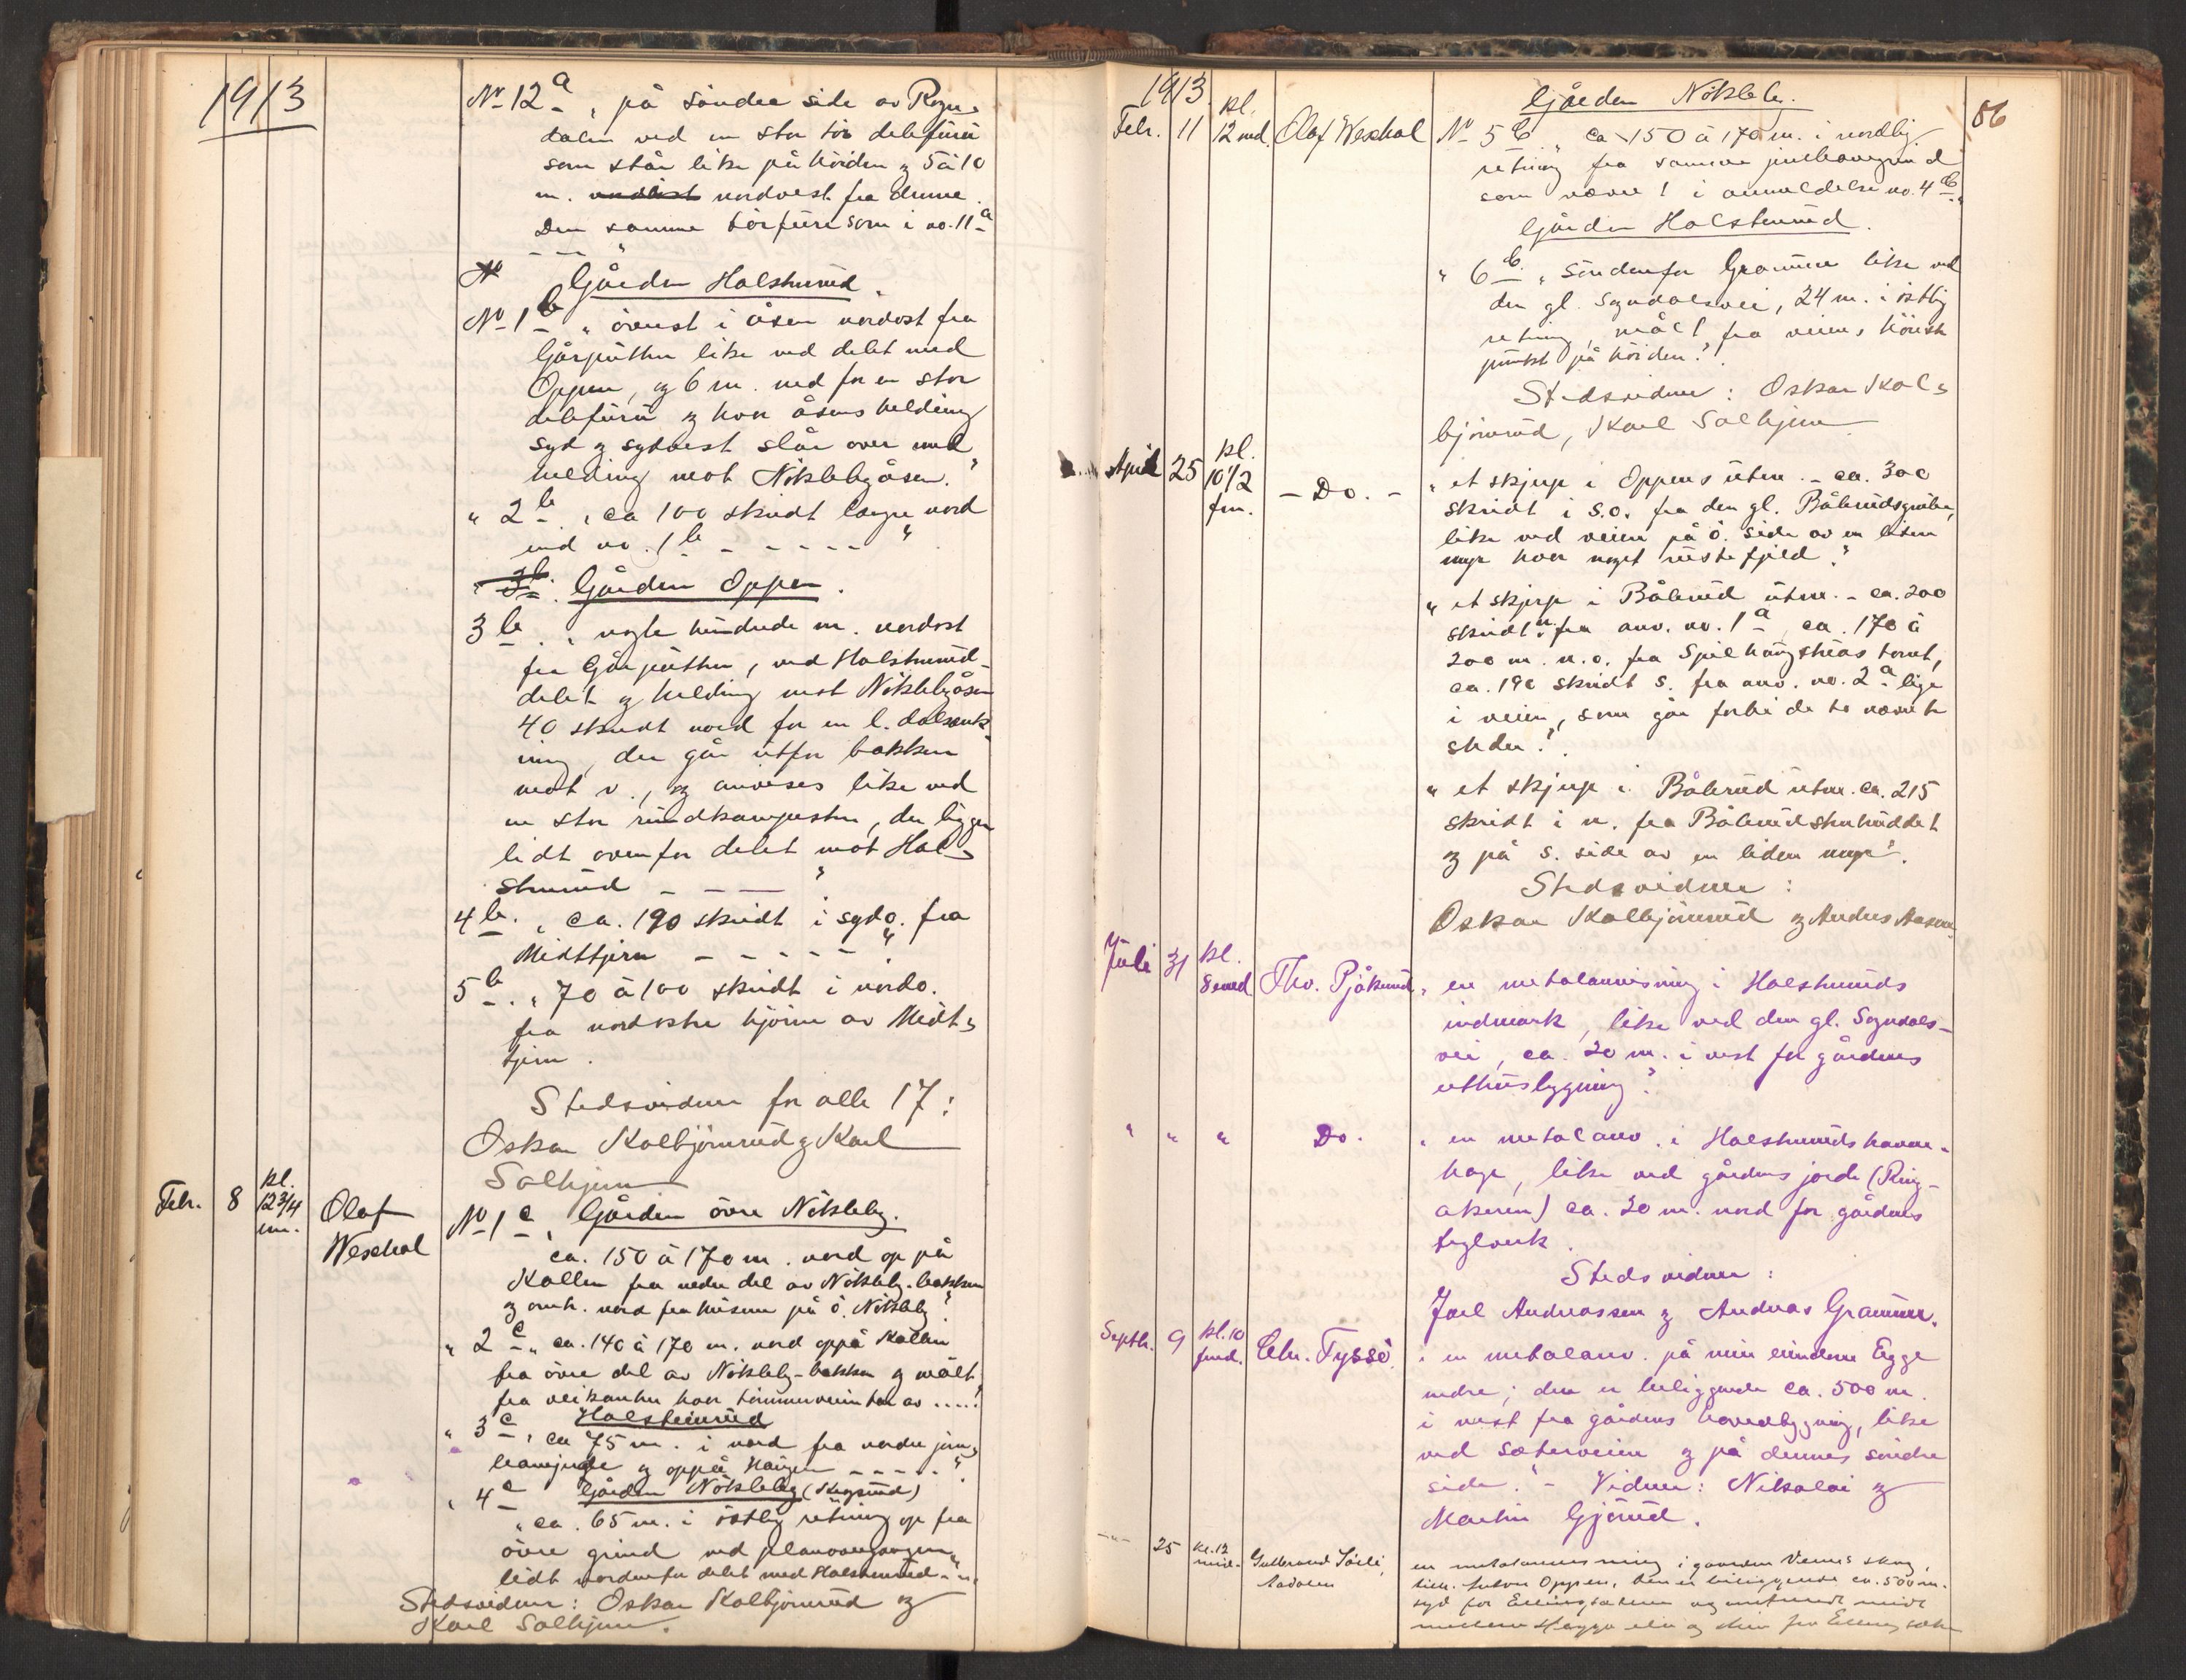 1913
No 12a „ på söndre side av Rogn-
dalen ved en stor tör delefuru
som står like på höiden og 5 à 10
m. nordvest fra denne.
Den samme törfuru som i no. 11a
— — "
No Gården Holsteinrud.
No 1b „ överst i åsen nordost fra
like ved delet med
Oppen, og 6 m. ned for en stor
delefuru og hvor åsens helding
syd og sydvest slår over med
helding mot Nöklebyåsen."
" 2b. „ ca 100 skridt længre nord
end no. 1b - - - - - "
3b. Gården Oppen.
3b. „ nogle hundrede m. nordost
fra , ved Holsteinrud-
delet og helding mot Nöklebyåsen
40 skridt nord for en l. dalsænk-
ning, der går utfor bakken
mot v., og anvises like ved
en stor rundkampesten, der ligger
lidt ovenfor delet mot Hol-
steinrud - - — "
4b. „ ca. 190 skridt i sydo. fra
Midttjern - - - - - "
5b. „ 70 à 100 skridt i nordo.
fra nordostre hjörne av Midt-
tjern.
Stedsvidner for alle 17:
Oskar Kolbjörnrud og Karl
Solhjem
Febr. 8 kl. 12 3/4 em. Olaf Wexhal
No 1c „ Gården övre Nökleby.
ca. 150 à 170 m. nord op på
Kollen fra nedre del av Nökleby-bakken
og omtr. nord fra husene på ö. Nökleby"
" 2c „ ca. 140 à 170 m. nord oppå Kollen
fra övre del av Nökleby-bakken og målt
fra veikanten hvor tömmerveien tar av ....."
Holsteinrud
" 3c „ ca 75 m. i nord fra nordre jern-
og oppå Haugen - - - - - "
" 4c Gården Nökleby (Skogsrud)
„ ca. 65 m. i östlig retning op fra
övre grind ved planovergangen
lidt nordenfor delet med Holsteinrud - "
Stedsvidner: Oskar Kolbjörnrud og
Karl Solhjem.
1913.
86
Gården Nökleby.
Febr. 11 kl. 12 md. Olaf Wexhal No 5c „ ca 150 à 170 m. i nordlig
retning fra samme
som nævnt i anmeldelse no. 4c."
Gården Holsteinrud.
" 6c. „ Söndenfor Gramme like ved
den gl. Sogndalsvei, 24 m. i östlig
retning, målt fra veiens höieste
punkt på höiden."
Stedsvidner: Oskar Kol-
björnrud, Karl Solhjem
April 25 kl. 10 1/2 fm. - Do. -
„ et skjerp i Oppens utm. - ca. 300
skridt i s.o. fra den gl. Båhusgrube,
like ved veien på ö. side av en liten
myr hvor noget rustefjeld."
„ et skjerp i Båhrud utm. - ca. 200
skridt n. fra anv. no. 1a, ca. 170 à
200 m. n.o. fra tomt,
ca. 190 skridt s. fra anv. no. 2a. lige
i veien, som går forbi de to nævnte
steder."
„ et skjerp i Båhrud utm. ca. 215
skridt i n. fra
og på s. side av en liden myr".
Stedsvidner:
Oskar Kolbjörnrud og Anders Aasen.
Juli 31 kl. 8 emd. Tho. Pjåkerud „ en metalanvisning i Holsteinruds
indmark, like ved den gl. Sogndals-
vei, ca. 20 m. i vest for gårdens
uthusbygning."
" " " Do. „ en metalanv. i Holsteinruds havne-
hage, like ved gårdens jorde (Ring-
akeren) ca. 30 m. nord for gårdens
teglverk.
Stedsvidner:
Joel Andreassen og Andreas Gramme.
Septb. 9 kl. 10 fmd. Chr. Tyssö. „ en metalanv. på min eiendom Egge
nedre; den er beliggende ca. 500 m.
i vest fra gårdens hovedbygning, like
ved sæterveien og på dennes söndre
side." - Vidner: Nikolai og
Martin Gjörud.
-"- 25 kl. 12 mid. Gulbrand Sörli, Aadalen
en metalanvisning i gaarden Viemes skog,
Oppen, den er beliggende ca. 500 m.
syd for og midt
mellem og fra